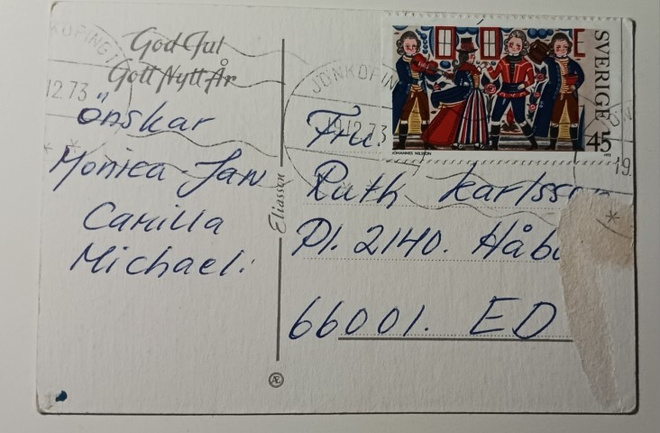 God Jul
Gott Nytt År
önskar
Monica Jan
Camilla
Michael.
Eliasson
Æ
JÖNKÖPING
12.73
SVERIGE
45
JOHANNES NILSSON
Fru.
Ruth Karlsson
Pl. 2140.
66001. ED